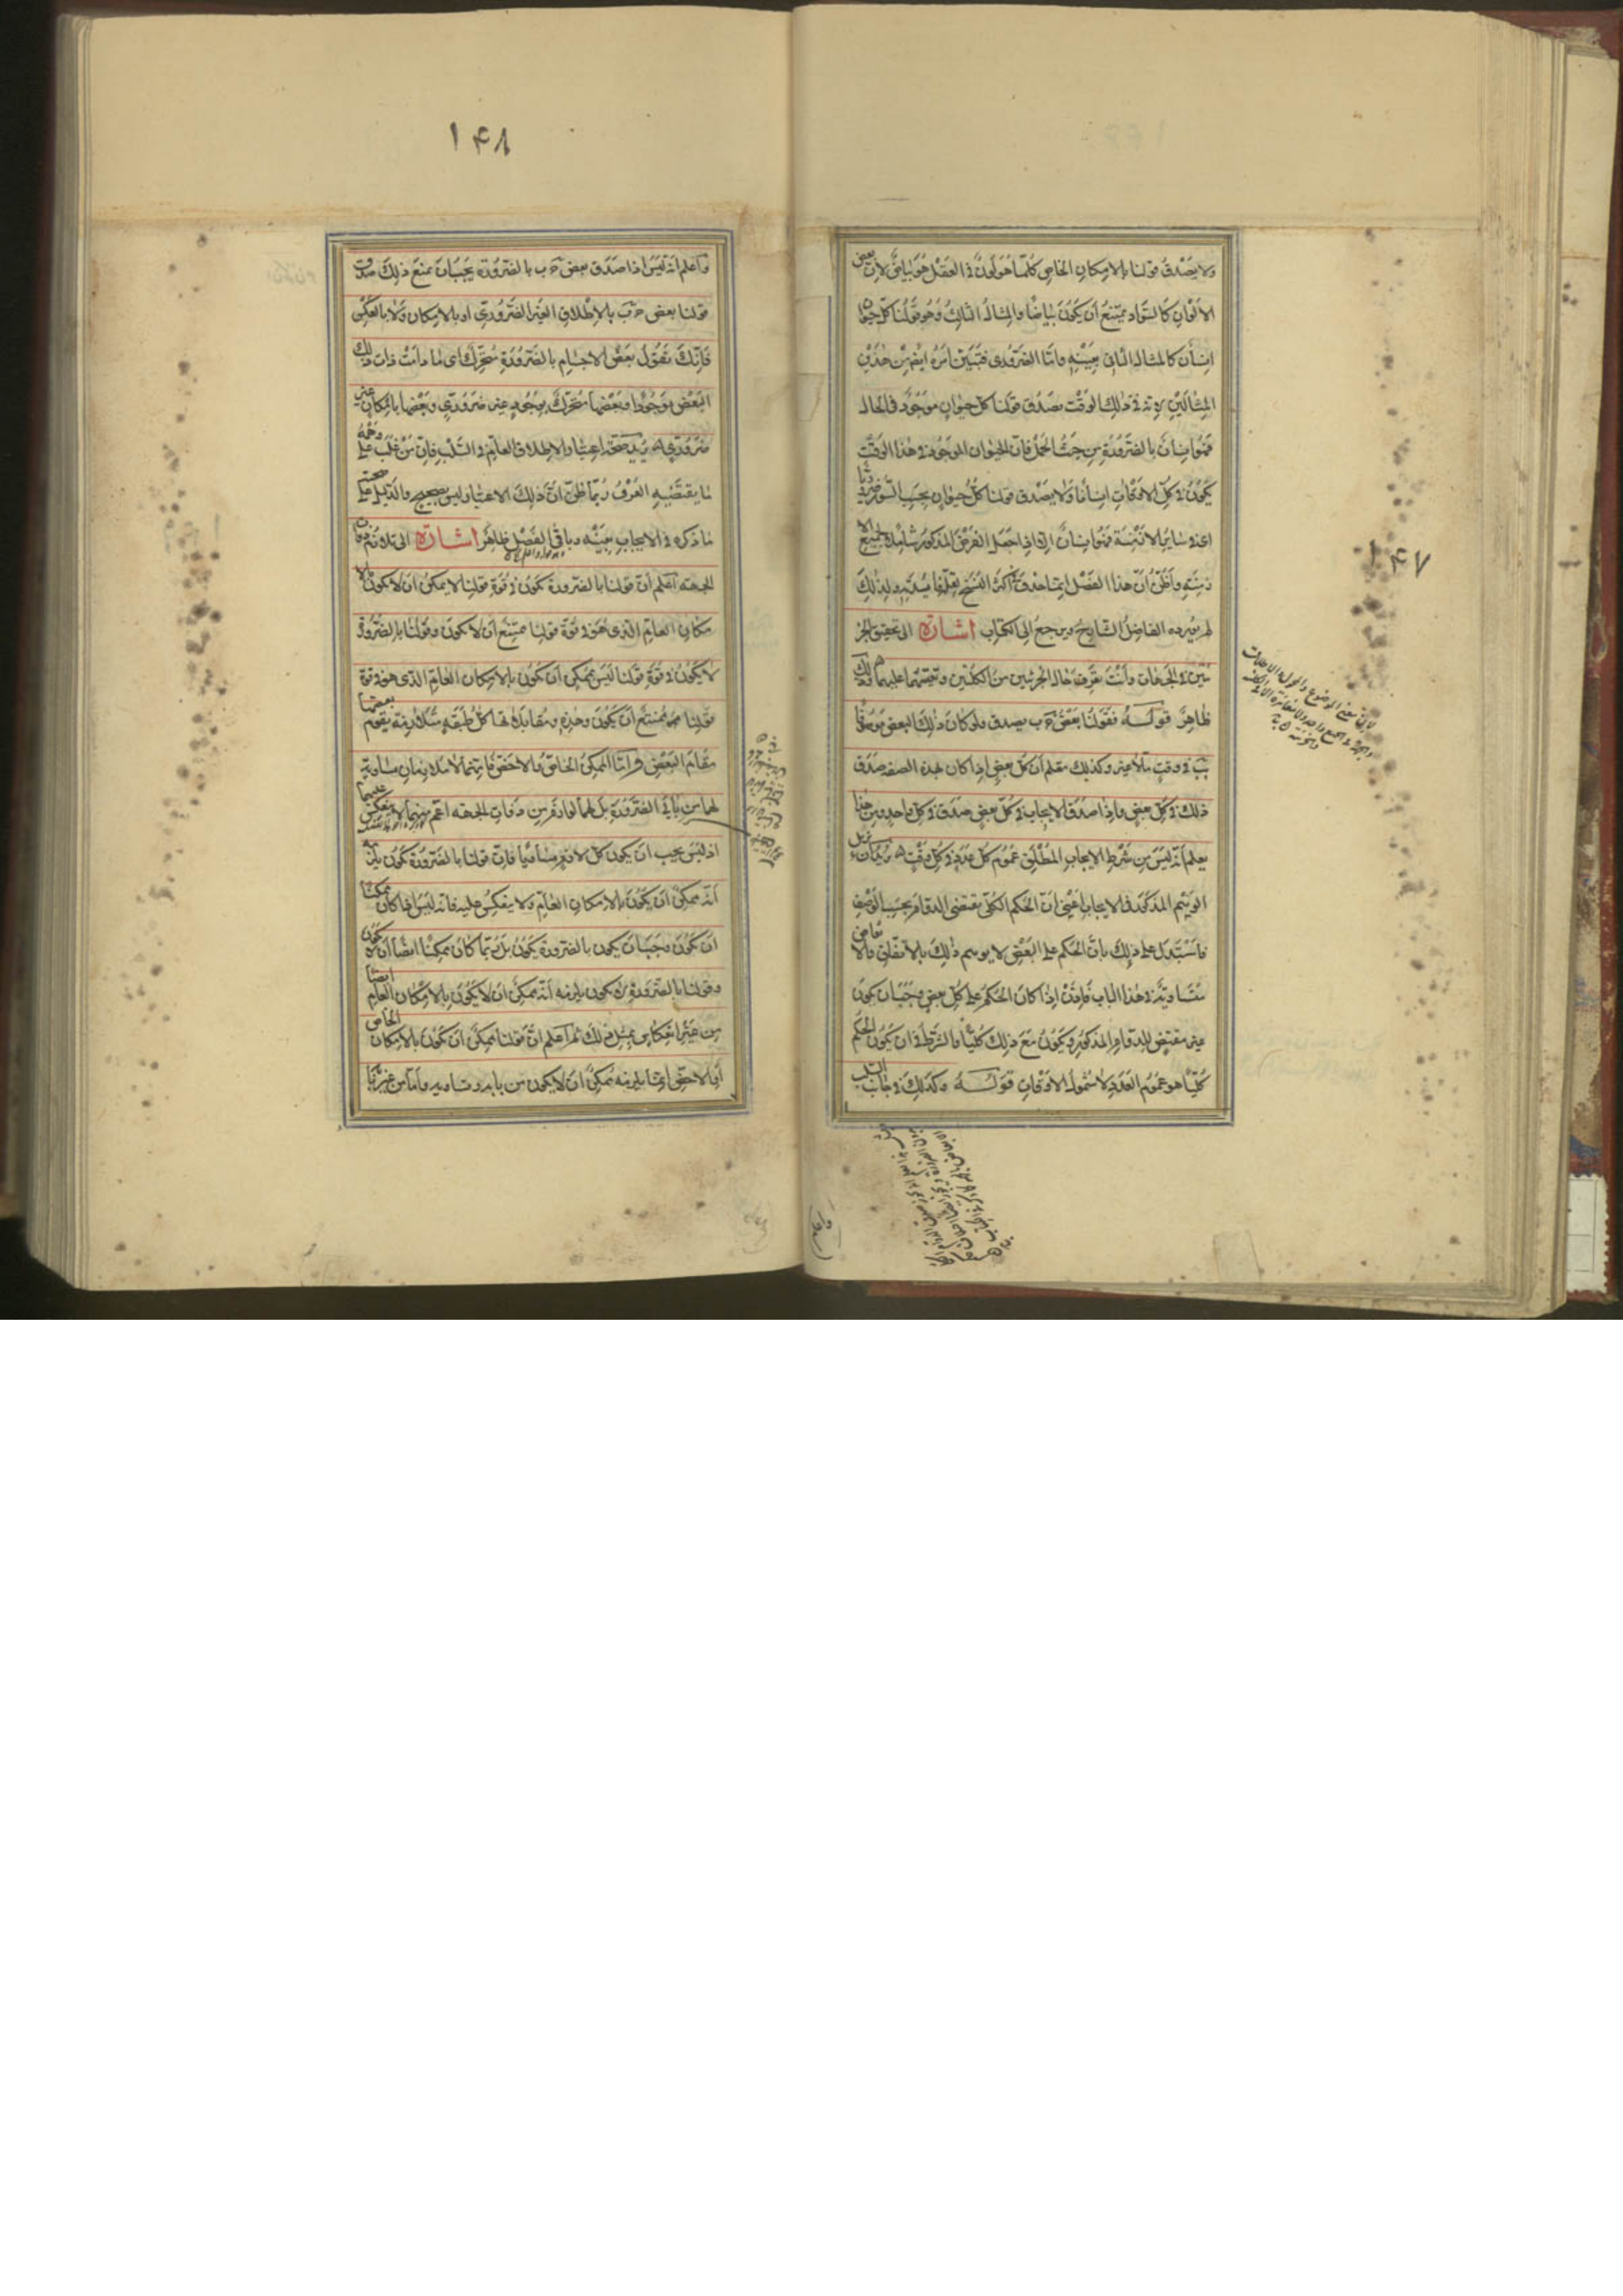 ١۴٧
ولا يصدق قولنا بالامكان الخاص كلما هو لون فى العقل هو بياض لان بعض
الالوان كالسواد يمتنع أن يكون بياضا والمثال الثالث وهو قولنا كل حيوان
انسان كالمثال الثانى بعينه وامّا الضرورى فتبين امره ايضا من هذين
المثالين لانه فى ذلك الوقت يصدق قولنا كل حيوان موجود فى الحال
فهو انسان بالضرورة من حيث الحمل فان الحيوان الموجود فى هذا الوقت
يكون فى كل الاوقات انسانا ولا يصدق قولنا كل حيوان بحسب السور ضروريا
اعنى فى ساير الازمنة فهو انسان اللهم الا اذا جعل الفرض المذكور شاملا لجميع
زمنة واظن أن هذا الفصل انما حذف فى أكثر النسخ لقلة فايدته ولذلك
لم يورده الفاضل الشارح ونرجع الى الكتاب اشارة الى تحقيق الجز
ئيتين فى الجهات وأنت تعرف حال الجزئيتين من الكليتين وتقيسهما عليهما وذلك
ظاهر قوله فقولنا بعض ج ب يصدق ولو كان ذلك البعض موصوفا
بب فى وقت لا غير وكذلك تعلم أن كل بعض اذا كان بهذه الصفة صدق
ذلك فى كل بعض واذا صدق الايجاب فى كل بعض صدق فى كل واحد ومن هذا
يعلم أنه ليس من شرط الايجاب المطلق عموم كل عدد فى كل وقت يريد ازالة
الوهم المذكور فى الايجاب اعنى أن الحكم الكلى يقتضى الدوام بحسب الوصف
فاستدل على ذلك بان الحكم على البعض لا يوهم ذلك بالاتفاق والابعاض
متساوية فى هذا الباب فاذن اذا كان الحكم على كل بعض وجب أن يكون
غير مقتض للدوام المذكور ويكون مع ذلك كليا والشرط فى أن يكون الحكم
كليا هو عموم العدد لا شمول الاوقات قوله وكذلك فى جانب السلب
١۴٨
واعلم أنه ليس اذا صدق بعض ج ب بالضرورة يجب أن يمنع ذلك صدق
قولنا بعض ج ب بالاطلاق الغير الضرورى او بالامكان ولا بالعكس
فانك تقول بعض الاجسام بالضرورة متحرك اى ما دامت ذات ذلك
البعض موجودا وبعضها متحرك بوجود غير ضرورى وبعضها بامكان غير
ضرورى يريد صحة اعتبار الاطلاق العام فى السلب فان من غلب على وهمه
ما يقتضيه العرف ربما ظن أن ذلك الاعتبار ليس بصحيح والدليل على صحته
ما ذكره فى الايجاب بعينه وباقى الفصل ظاهر اشارة الى تلازم ذوات
الجهة اعلم أن قولنا بالضرورة يكون فى قوة قولنا لا يمكن أن لا يكون بالا
مكان العام الذى هو فى قوة قولنا ممتنع أن لا يكون وقولنا بالضرورة
لا يكون فى قوة قولنا ليس بممكن أن يكون بالامكان العام الذى هو فى قوة
قولنا ممتنع أن يكون وهذه ومقابلاتها كل طبقة متلازمة يقوم بعضها
مقام البعض وامّا الممكن الخاص والاخص فانهما لا متلازمان متساوية
لهما من بابى الضرورة بل لهما لوازم من ذوات الجهة اعم منهما لا ينعكس عليهما
اذ ليس يجب أن يكون كل لازم مساويا فان قولنا بالضرورة يكون يلزمه
أنه ممكن أن يكون بالامكان العام ولا ينعكس عليه فانه ليس اذا كان ممكنا
أن يكون وجب أن يكون بالضرورة يكون بل ربما كان ممكنا ايضا أن لا يكون
وقولنا بالضرورة لا يكون يلزمه أنه ممكن أن لا يكون بالامكان العام ايضا
من غير انعكاس بمثل ذلك ثم اعلم أن قولنا ممكن أن يكون بالامكان الخاص
او الاخص انما يلزمه ممكن أن لا يكون من بابه وتساويه وامّا من غير بابه